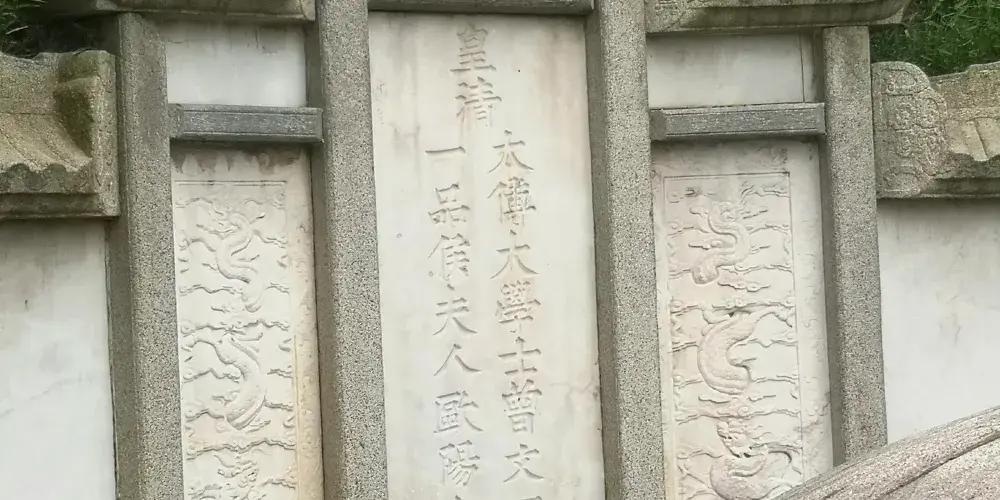 皇清
太傅大學士曾文
一品侯夫人歐陽